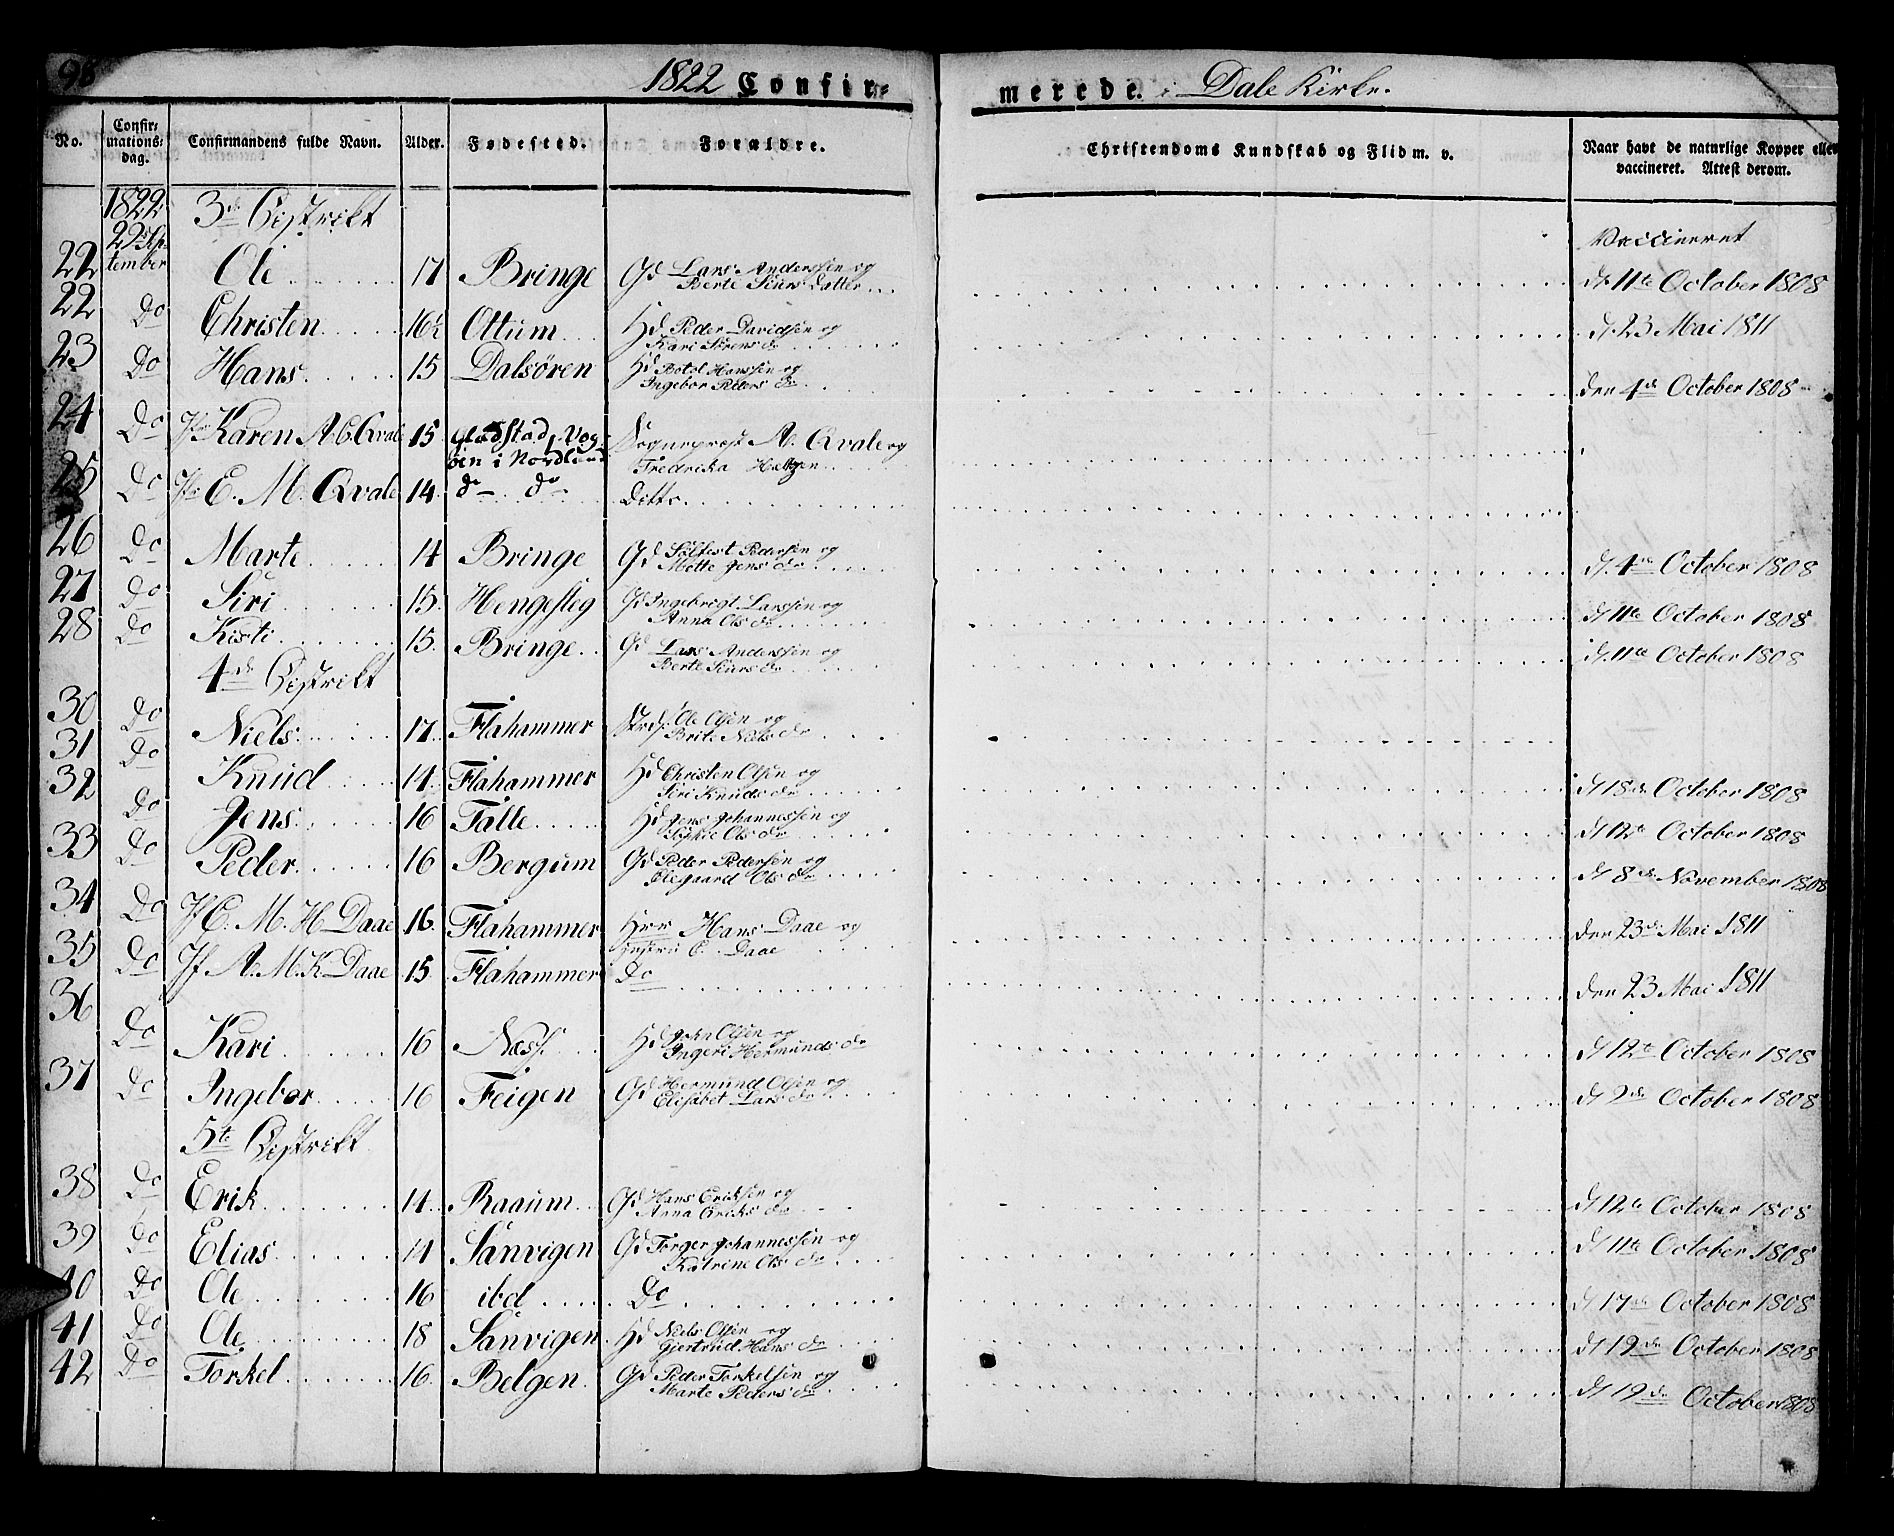 96
1822 Confir-
merede i Dale Kirke.
No.
Confir-
mations-
dag.
Confirmandens fulde Navn.
Alder.
Fødested.
Forældre.
Christendoms Kundskab og Flid m. v.
Naar havt de naturlige Kopper eller
vaccineret. Attest derom.
1822 3de Distrikt
22 Sep-
tember
Vaccineret
22 Ole 17 Bringe Gd Lars Anderssen og
Berte Siurs Datter
d. 11te October 1808
22 Do Christen 16½ Ottum Hd Peder Davidsen og
Kari Sørens dr
d. 23 Mai 1811
23 Do Hans 15 Dalsören Hd Botol Hanssen og
Ingebor Peders dr
den 4de October 1808
24 Do Jfr Karen A. C. Qvale 15 Gladstad, Veg-
öen i Nordland
Sogneprest A. Qvale og
Fredrika Heltzen
25 Do Jfr E. M. Qvale 14 do do Ditto
26 Do Marte 14 Bringe Gd Solfest Pedersen og
Mette Jens dr
d. 4de October 1808
27 Do Siri 15 Hengesteg Gd Ingebrigt Larssen og
Anna Ols dr
d. 11te October 1808
28 Do Kisti 15 Bringe Gd Lars Anderssen og
Berte Siurs dr
d. 11te October 1808
4de Distrikt
30 Do Niels 17 Flahammer Strds Ole Olsen og
Brite Niels dr
31 Do Knud 14 Flahammer Hd Christen Olsen og
Siri Knuds dr
d. 18de October 1808
32 Do Jens 16 Talle Hd Jens Johannessen og
Ols dr
d. 12te October 1808
33 Do Peder 16 Bergum Gd Peder Pedersen og
Olegaard Ols dr
d. 8de November 1808
34 Do Jf C. M. H. Daae 16 Flahammer Herr Hans Daae og
C. Daae
den 23de Mai 1811
35 Do Jf A. M. K. Daae 15 Flahammer Do
den 23 Mai 1811
36 Do Kari 16 Næss Hd John Olsen og
Ingeri Hermunds dr
d. 12te October 1808
37 Do Ingebor 16 Feigen Gd Hermund Olsen og
Elisabet Lars dr
d. 2de October 1808
5te Distrikt
38 Do Erik 14 Raaum Gd Hans Eriksen og
Anna Eriks dr
d. 12te October 1808
39 Do Elias 14 Sanvigen Gd Torger Johannessen og
Katrine Ols dr
d. 11te October 1808
40 Do Ole 16 ibd Do
d. 17de October 1808
41 Do Ole 18 Sanvigen Hd Niels Olsen og
Gjertrud Hans dr
d. 19de October 1808
42 Do Torkel 16 Belgen Gd Peder Torkelsen og
Marte Peders dr
d. 19de October 1808